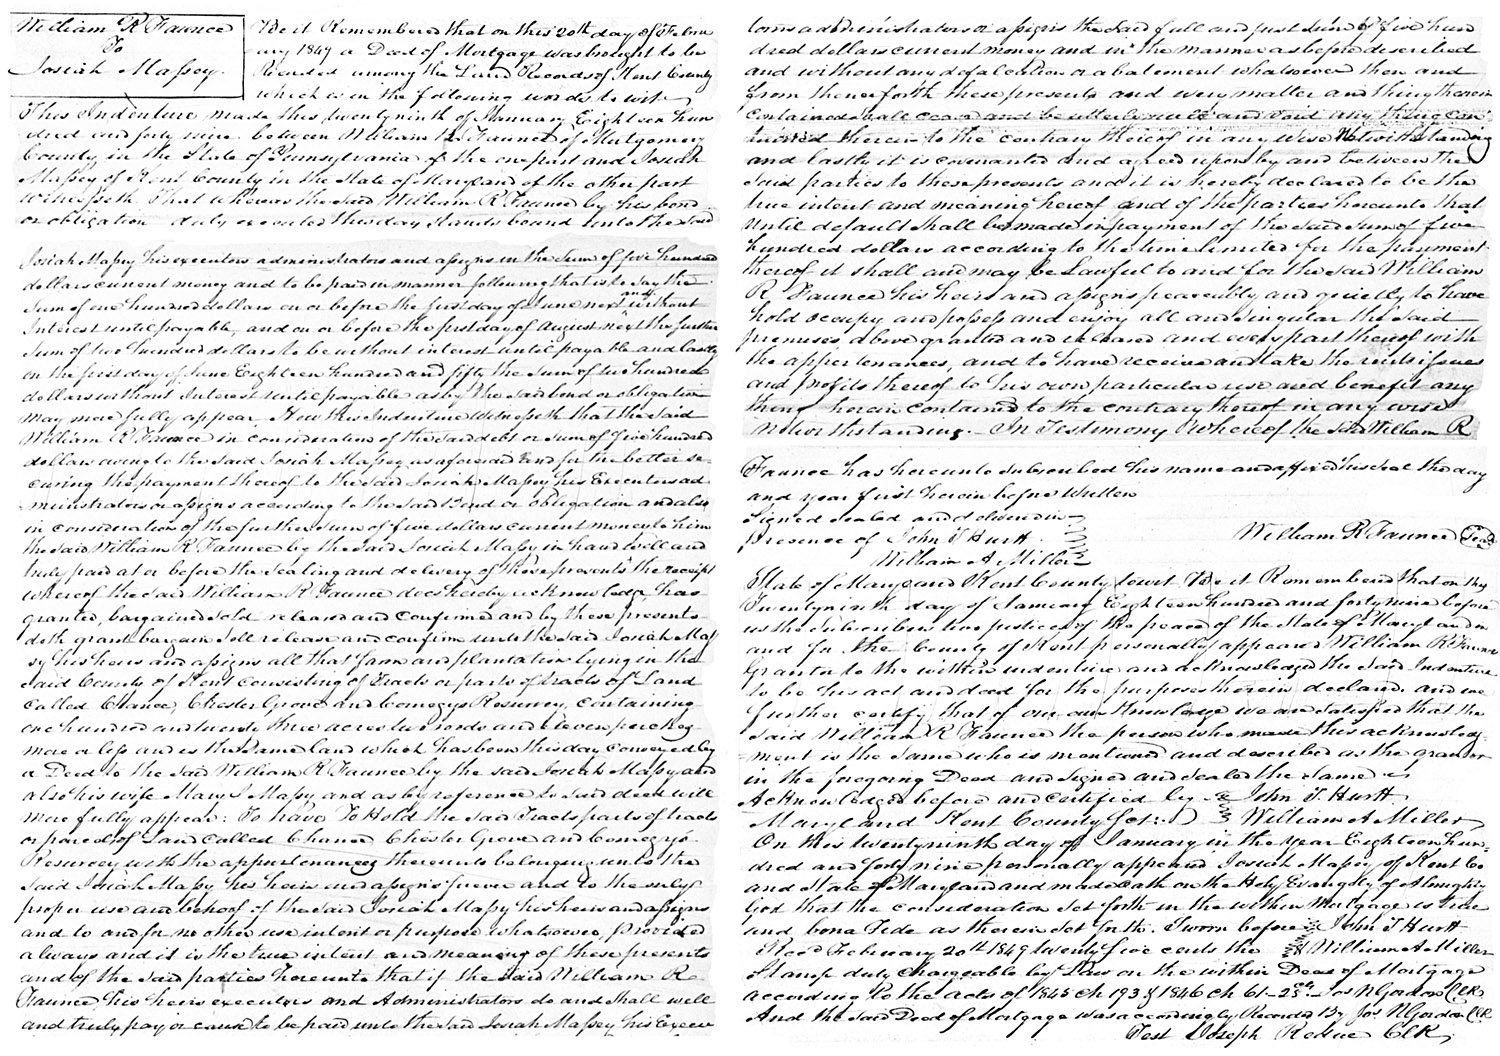 William R Faunce
To
Josiah Massey.
Be it Remembered that on this 20th day of Febru
ary 1849 a Deed of Mortgage was brought to be
Recorded among the Land Records of Kent County
which is in the following words, to wit,
This Indenture made this twenty ninth of January Eighteen hun
dred and forty nine between William R Faunce of Montgomery
County, in the State of Pennsylvania of the one part and Josiah
Massey of Kent County in the State of Maryland of the other part
Witnesseth. That whereas the said William R Faunce by his bond
or obligation duly executed this day stands bound unto the said
Josiah Massy his executors administrators and assigns in the sum of five hundred
dollars current money and to be paid in manner following that is to say the
sum of one hundred dollars on or before the first day of June next and without
Interest until payable, and on or before the first day of August next the further
sum of two hundred dollars to be without interest until payable and lastly
on the first day of June Eighteen hundred and fifty the sum of two hundred
dollars without Interest until payable as by the said bond or obligation
may more fully appear. Now this Indenture Witnesseth that the said
William R Faunce in consideration of the said debt or sum of five hundred
dollars owing to the said Josiah Massy as aforesaid and for the better se-
curing the payment thereof to the said Josiah Massy his Executors ad-
ministrators or assigns according to the said Bond or obligation and also
in consideration of the further sum of five dollars current money to him
the said William R Faunce by the said Josiah Massy in hand well and
truly paid at or before the sealing and delivery of these presents the receipt
whereof the said William R Faunce does hereby acknowledge has
granted, bargained sold released and confirmed and by these presents
doth grant bargain sell release and confirm unto the said Josiah Mas
sy his heirs and assigns all that farm and plantation lying in the
said County of Kent consisting of Tracts or parts of tracts of Land
called Chance, Chester Grove and Comegys Resurvey, containing
one hundred and twenty three acres two roods and eleven perches
more or less and is the same land which has been this day conveyed by
a Deed to the said William R Faunce by the said Josiah Massy and
also his wife Mary Massy and as by reference to said deed will
more fully appear: To have To Hold the said Tracts parts of tracts
or parcels of Land called Chance Chester Grove and Comegys
Resurvey with the appurtenances thereunto belonging unto the
said Josiah Massy his heirs and assigns forever and to the only
proper use and behoof of the said Josiah Massy his heirs and assigns
and to and for no other use intent or purpose whatsoever, provided
always and it is the true intent and meaning of these presents
and of the said parties hereunto that if the said William R
Faunce his heirs executors and Administrators do and shall well
and truly pay or cause to be paid unto the said Josiah Massey his Execu
tors administrators or assigns the said full and just sum of five hun
dred dollars current money and in the manner as before described
and without any defalcation or abatement whatsoever then and
from thenceforth these presents and every matter and thing therein
contained shall cease and be utterly null and void any thing con
tained therein to the contrary thereof in any wise Notwithstanding
and lastly it is covenanted and agreed upon by and between the
said parties to these presents and it is hereby declared to be the
true intent and meaning hereof and of the parties hereunto that
until default shall be made in payment of the said sum of five
hundred dollars according to the time limited for the payment
thereof it shall and may be Lawful to and for the said William
R Faunce his heirs and assigns peaceably and quietly to have
hold occupy and possess and enjoy all and singular the said
premises, above granted and released and every part thereof with
the appurtenances, and to have receive and take the rents issues
and profits thereof to his own particular use and benefit any
thing herein contained to the contrary thereof in any wise
notwithstanding. In Testimony Whereof the said William R
Faunce has hereunto subscribed his name and affixed his seal the day
and year first herein before written
Signed sealed and delivered in
presence of John T Hurtt
William A Miller
William R Faunce Seal
State of Maryland Kent County towit Be it Remembered that on this
Twenty ninth day of January Eighteen hundred and forty nine before
us the subscribers two justices of the peace of the State of Maryland in
and for the County of Kent personally appears William R Faunce
Grantor to the within indenture and acknowledged the said Indenture
to be his act and deed for the purposes therein declared. and we
further certify that of our own Knowledge we are satisfied that the
said William R Faunce the person who made this acknowledg
ment is the same who is mentioned and described as the grantor
in the foregoing Deed and signed and sealed the same
Acknowledged before and certified by John T. Hurtt
William A Miller
Maryland Kent County Sct:
On this twenty ninth day of January in the year Eighteen hun-
dred and forty nine personally appeared Josiah Massey of Kent Co
and State of Maryland and made oath on the Holy Evangely of Almighty
God that the consideration set forth in the within Mortgage is true
and bona Fide as therein set forth. Sworn before John T Hurtt
William A Miller
Recd February 20th 1849 twenty five cents the
Stamp duty chargeable by Law on the within Deed of Mortgage
according to the acts of 1845 ch 193 & 1846 ch 61-25cts Jos N Gordon Clk
And the said Deed of Mortgage was accordingly Recorded By Jos N Gordon Clk
Test Joseph Redue Clk,